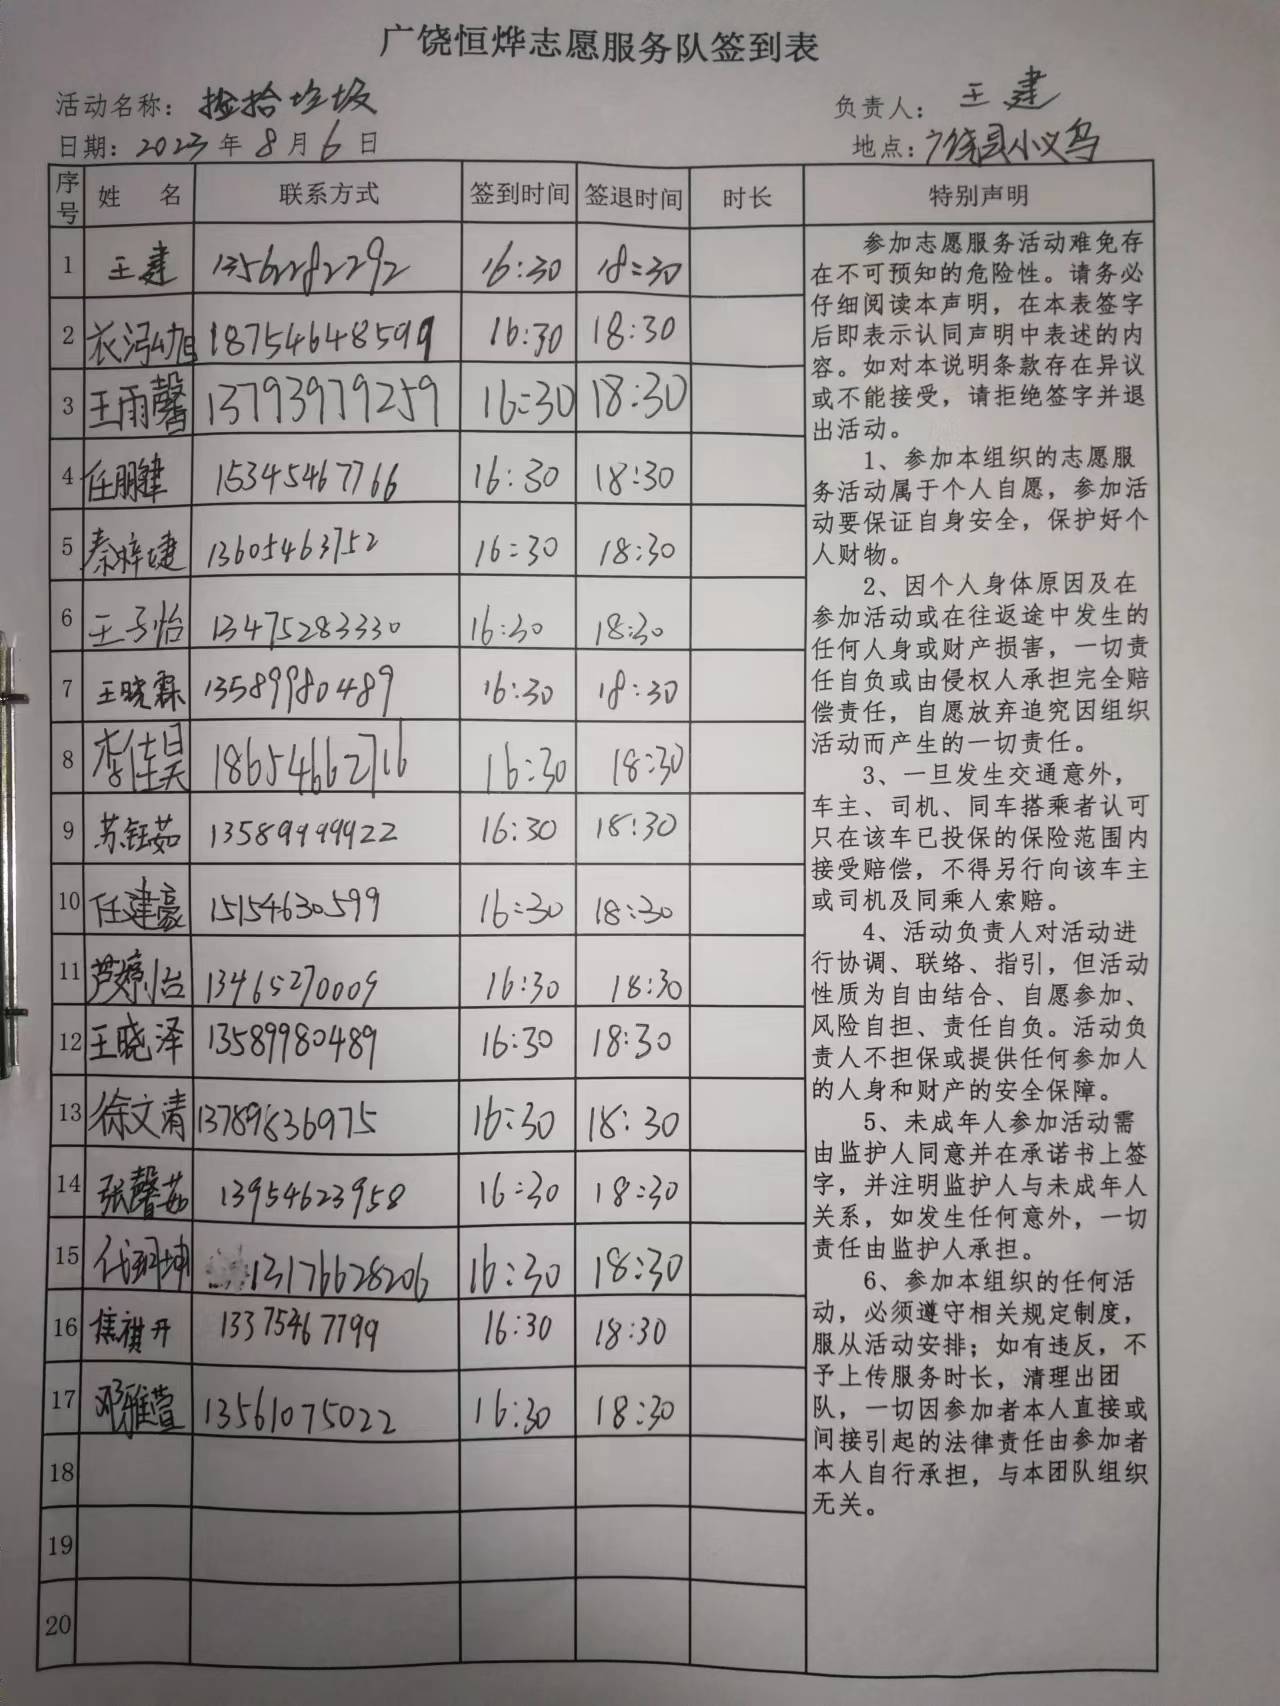 广饶恒烨志愿服务队签到表
活动名称：捡拾垃圾 负责人：王建
日期：2023年8月6日 地点：广饶县小义乌
序号 姓名 联系方式 签到时间 签退时间 时长 特别声明
1 王建 13562282292 16:30 18:30
2 衣泓旭 18754648599 16:30 18:30
3 王雨馨 13793979259 16:30 18:30
4 任鹏肆 15345467766 16:30 18:30
5 秦梓婕 13605463752 16:30 18:30
6 王子怡 13475283330 16:30 18:30
7 王晓霖 13589980489 16:30 18:30
8 李佳昊 18654662716 16:30 18:30
9 苏钰茹 13589999922 16:30 18:30
10 任建豪 15154630599 16:30 18:30
11 芦婷怡 13465270009 16:30 18:30
12 王晓泽 13589980489 16:30 18:30
13 徐文清 13789836975 16:30 18:30
14 张馨茹 13954623958 16:30 18:30
15 代珂坤 13176628206 16:30 18:30
16 焦祺开 13375467799 16:30 18:30
17 邓雅萱 13561075022 16:30 18:30
18
19
20
参加志愿服务活动难免存
在不可预知的危险性。请务必
仔细阅读本声明，在本表签字
后即表示认同声明中表述的内
容。如对本说明条款存在异议
或不能接受，请拒绝签字并退
出活动。
1、参加本组织的志愿服
务活动属于个人自愿，参加活
动要保证自身安全，保护好个
人财物。
2、因个人身体原因及在
参加活动或在往返途中发生的
任何人身或财产损害，一切责
任自负或由侵权人承担完全赔
偿责任，自愿放弃追究因组织
活动而产生的一切责任。
3、一旦发生交通意外，
车主、司机、同车搭乘者认可
只在该车已投保的保险范围内
接受赔偿，不得另行向该车主
或司机及同乘人索赔。
4、活动负责人对活动进
行协调、联络、指引，但活动
性质为自由结合、自愿参加、
风险自担、责任自负。活动负
责人不担保或提供任何参加人
的人身和财产的安全保障。
5、未成年人参加活动需
由监护人同意并在承诺书上签
字，并注明监护人与未成年人
关系，如发生任何意外，一切
责任由监护人承担。
6、参加本组织的任何活
动，必须遵守相关规定制度，
服从活动安排；如有违反，不
予上传服务时长，清理出团
队，一切因参加者本人直接或
间接引起的法律责任由参加者
本人自行承担，与本团队组织
无关。